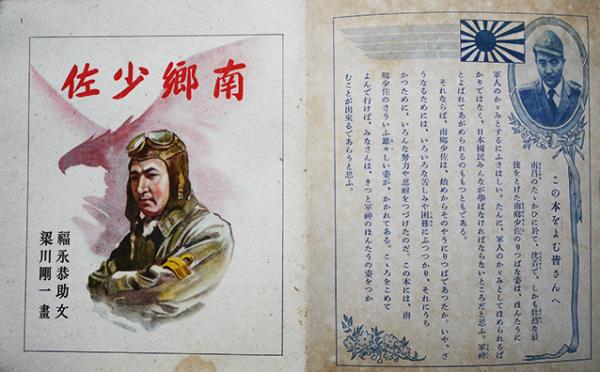 南郷少佐
福永恭助文
梁川剛一畫
この本をよむ皆さんへ
南昌のたゝかひに於て、沈着で、しかも壮烈な最
後をとげた南郷少佐のりつぱな姿は、ほんたうに
軍人のかゞみとするにふさはしい。たんに、軍人のかゞみとしてほめられるば
かりではなく、日本國民みんなが學ばなければならないところだと思ふ。軍神
とよばれてあがめられるのももつともである。
それならば、南郷少佐は、始めからそのやうにりつぱであつたか。いや、さ
うなるためには、いろいろな苦しみや困難にぶつつかり、それにうち
かつために、いろんな努力や忍耐をつづけたのだ。この本には、南
郷少佐のさういふ雄々しい姿が、かかれてある。こゝろをこめて
よんで行けば、みなさんは、きつと軍神のほんたうの姿をつか
むことが出來るであらうと思ふ。